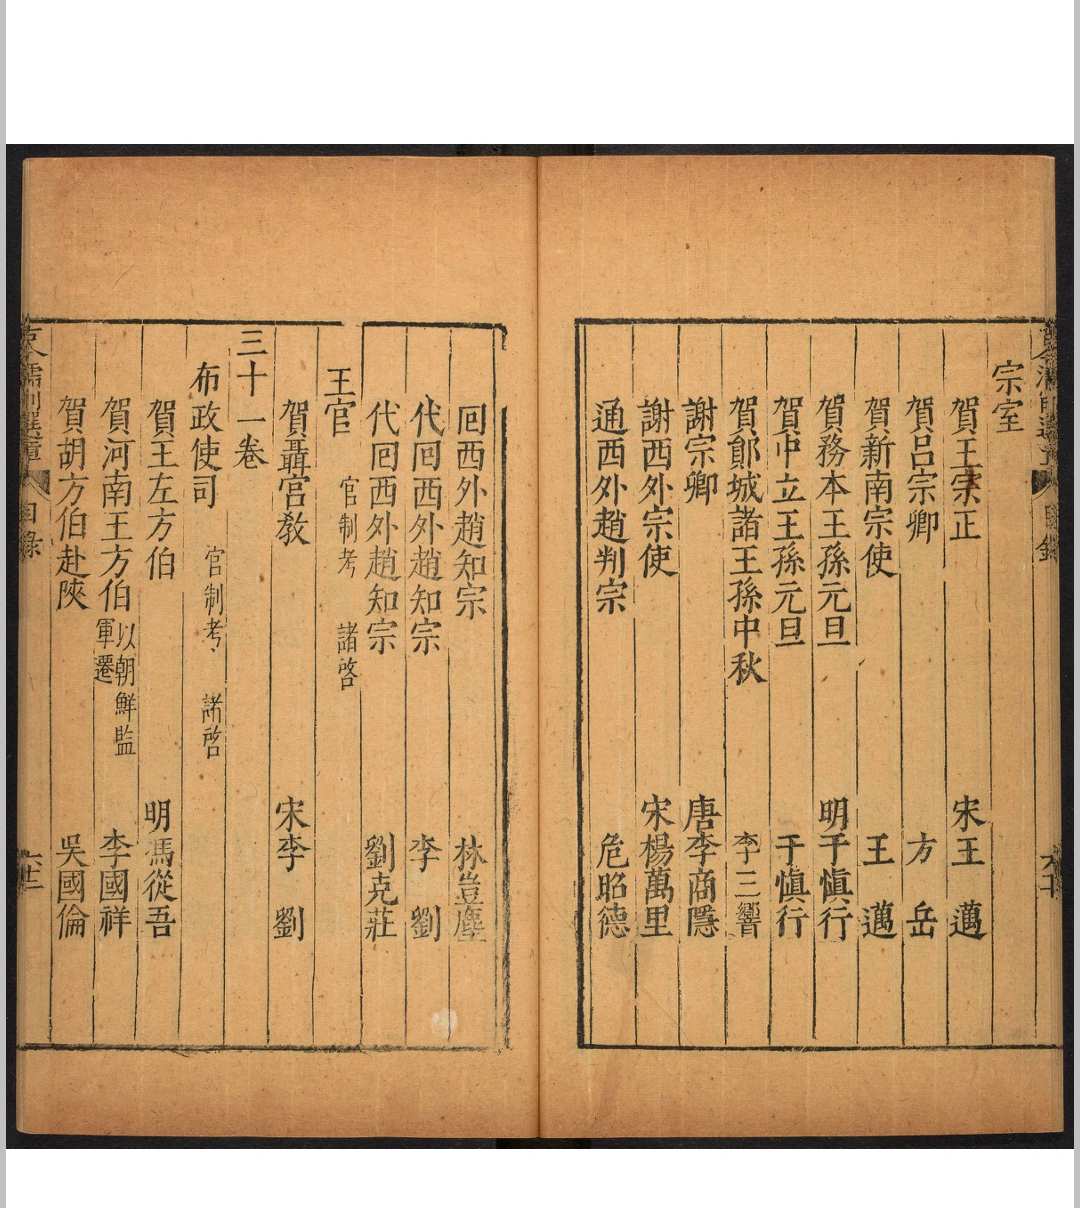 宗室
賀王宗正 宋王邁
賀呂宗卿 方岳
賀新南宗使 王邁
賀務本王孫元旦 明于慎行
賀中立王孫元旦 于慎行
賀鄖城諸王孫中秋 李三
謝宗卿 唐李商隱
謝西外宗使 宋楊萬里
通西外趙判宗 危昭德
回西外趙知宗 林豈塵
代回西外趙知宗 李劉
代回西外趙知宗 劉克莊
王官 官制考 諸啓
賀聶宮教 宋李劉
三十一卷
布政使司 官制考 諸啓
賀王左方伯 明馮從吾
賀河南王方伯 以朝鮮監軍遷 李國祥
賀胡方伯赴陝 吳國倫
目錄